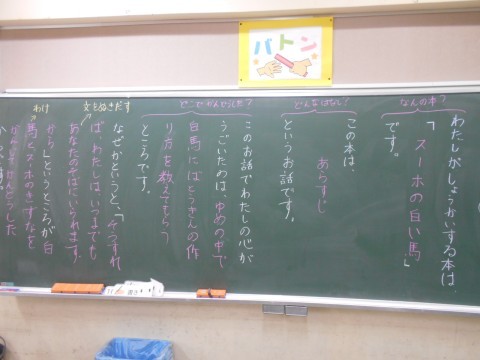 バトン
なんの本?
わたしがしょうかいする本は、
「スーホの白い馬」
です。
どんなはなし?
この本は、
あらすじ
というお話です。
どこでかんどうした?
このお話でわたしの心が
うごいたのは、ゆめの中で
白馬にばとうきんの作
り方を教えてもらう
ところです。
文をぬきだす
なぜかというと、「そうすれ
ば、わたしはいつまでも
あなたのそばにいられます
から」というところが白
わけ
馬とスーホのきずなを